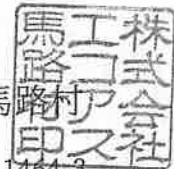 株式会社
エコアス
馬路 印
馬路村
1464-3